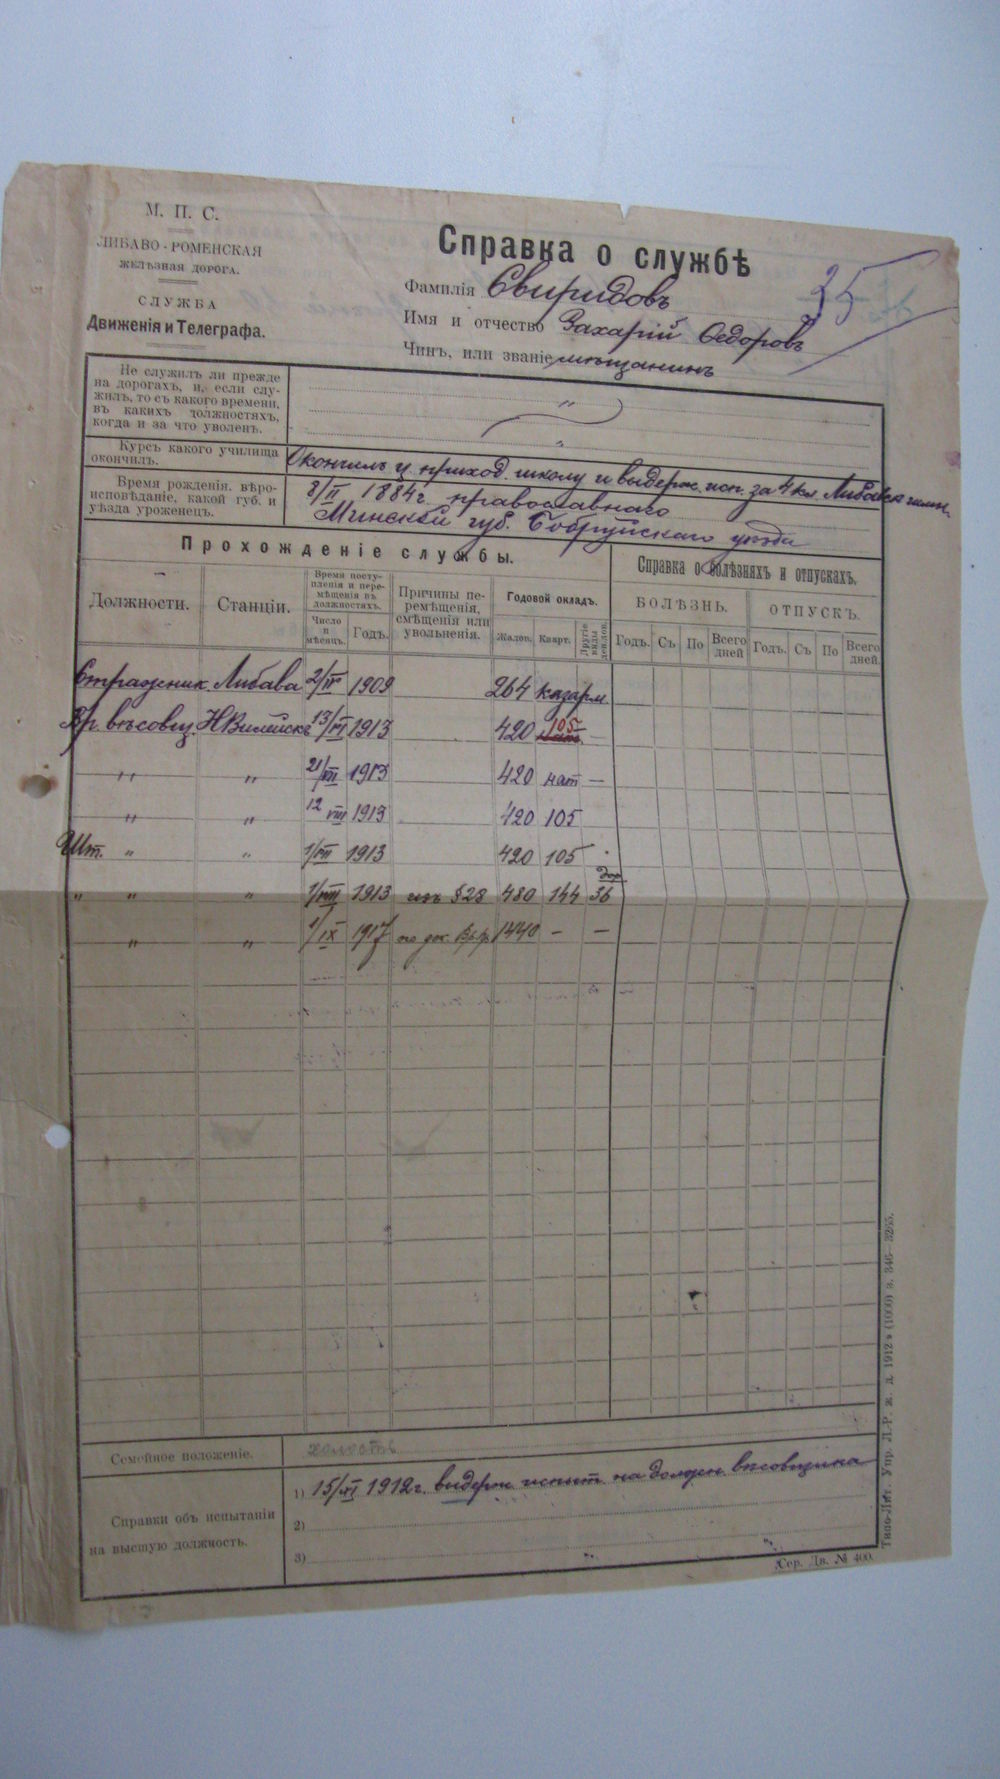 М. П. С.
ЛИБАВО-РОМЕНСКАЯ
ЖЕЛѢЗНАЯ ДОРОГА.
СЛУЖБА
Движенія и Телеграфа.
Справка о службѣ
25
Фамилія Свиридовъ
Имя и отчество Захарій Ѳедоровъ
Чинъ, или званіе мѣщанинъ
Не служилъ ли прежде
на дорогахъ, и, если слу-
жилъ, то съ какого времени,
въ какихъ должностяхъ,
когда и за что уволенъ.
"
"
Курсъ какого училища
окончилъ.
Окончилъ ц. приход. школу и выдерж. исп. за 4 кл. Либавск гимн.
Время рожденія, вѣро-
исповѣданіе, какой губ. и
уѣзда уроженецъ.
8/II 1884 г. православнаго
Минской губ. Бобруйскаго уѣзда
Прохожденіе службы.
Справка о болѣзняхъ и отпускахъ.
Должности.
Станціи.
Время посту-
пленія и пере-
мѣщенія въ
должностяхъ.
Число
и
мѣсяцъ.
Годъ.
Причины пе-
ремѣщенія,
смѣщенія или
увольненія.
Годовой окладъ.
Жалов.
Кварт.
Другіе
виды
доволов.
БОЛѢЗНЬ.
ОТПУСКЪ.
Годъ. Съ По Всего
дней
Годъ. Съ По Всего
дней.
Стражник. Либава 2/IV 1909 264 казарм
Вр. вѣсовщ. НВилейскъ 13/VI 1913 420 105 —
" " 21/VII 1913 420 нат —
" " 12 VIII 1913 420 105
Шт. " " 1/VII 1913 420 105
дор.
" " " 1/VIII 1913 изъ § 28 480 144 36
" " 1/IX 1917 по док. Вр. Пр. 1440 — —
Семейное положеніе.
холостъ
Справки объ испытаніи
на высшую должность.
1) 15/XI 1912 г. выдерж испыт. на должн. вѣсовщика
2)
3) " "
Сер. Дв. № 400.
Типо-Лит. Упр. Л.-Р. ж. д. 1912 г (1000) з. 346—3265.